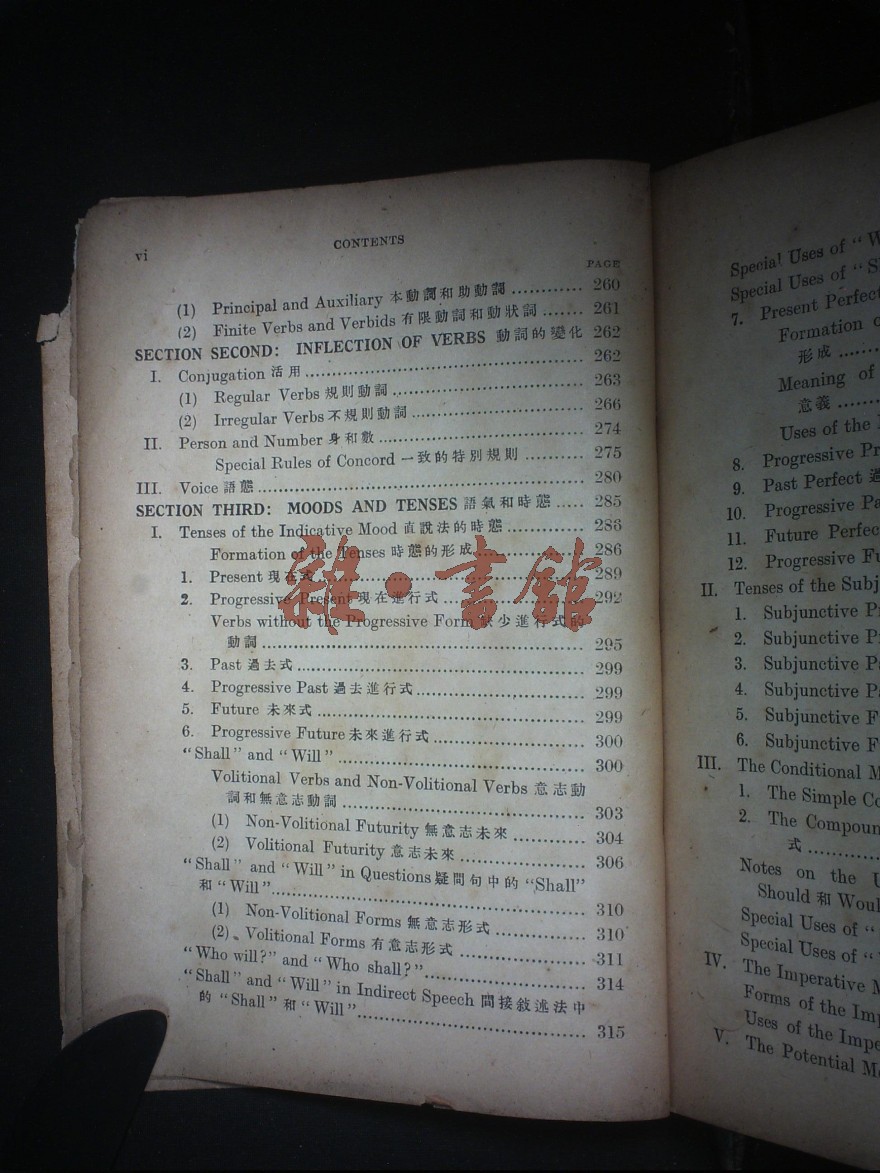 vi
CONTENTS
PAGE
(1) Principal and Auxiliary 本動詞和助動詞 ............ 260
(2) Finite Verbs and Verbids 有限動詞和動狀詞 ....... 261
SECTION SECOND: INFLECTION OF VERBS 動詞的變化 262
I. Conjugation 活用 ............ 262
(1) Regular Verbs 規則動詞 ............ 263
(2) Irregular Verbs 不規則動詞 ............ 266
II. Person and Number 身和數 ............ 274
Special Rules of Concord 一致的特別規則 .......... 275
III. Voice 語態 ............ 280
SECTION THIRD: MOODS AND TENSES 語氣和時態 ..... 285
I. Tenses of the Indicative Mood 直說法的時態 ............ 286
Formation of the Tenses 時態的形成 ............ 286
1. Present 現在式 ............ 289
2. Progressive Present 現在進行式 ............ 292
Verbs without the Progressive Form 缺少進行式的
動詞 ............ 295
3. Past 過去式 ............ 299
4. Progressive Past 過去進行式 ............ 299
5. Future 未來式 ............ 299
6. Progressive Future 未來進行式 ............ 300
"Shall" and "Will" ............ 300
Volitional Verbs and Non-Volitional Verbs 意志動
詞和無意志動詞 ............ 303
(1) Non-Volitional Futurity 無意志未來 ............ 304
(2) Volitional Futurity 意志未來 ............ 306
"Shall" and "Will" in Questions 疑問句中的 "Shall"
和 "Will" ............ 310
(1) Non-Volitional Forms 無意志形式 ............ 310
(2) Volitional Forms 有意志形式 ............ 311
"Who will?" and "Who shall?" ............ 314
"Shall" and "Will" in Indirect Speech 間接敘述法中
的 "Shall" 和 "Will" ............ 315
雜·書館
Special Uses of "W
Special Uses of "S
7. Present Perfect
Formation o
形成 ......
Meaning of
意義 ......
Uses of the
8. Progressive Pr
9. Past Perfect 過
10. Progressive Pa
11. Future Perfec
12. Progressive Fu
II. Tenses of the Subj
1. Subjunctive P
2. Subjunctive P
3. Subjunctive P
4. Subjunctive P
5. Subjunctive F
6. Subjunctive F
III. The Conditional M
1. The Simple Co
2. The Compoun
式 ......
Notes on the U
Should 和 Woul
Special Uses of "
Special Uses of "
IV. The Imperative M
Forms of the Imp
Uses of the Impe
V. The Potential M